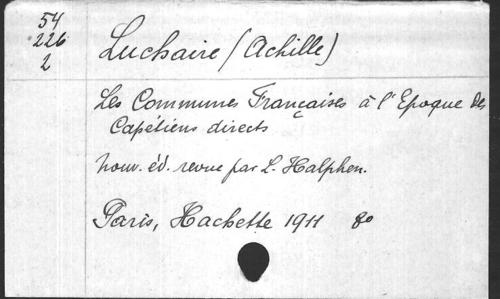 54
226
2
Luchaire (Achille)
Les Communes Françaises à l'Epoque des
Capétiens directs
Nouv. éd. revue par L. Halphen.
Paris, Hachette 1911 8o